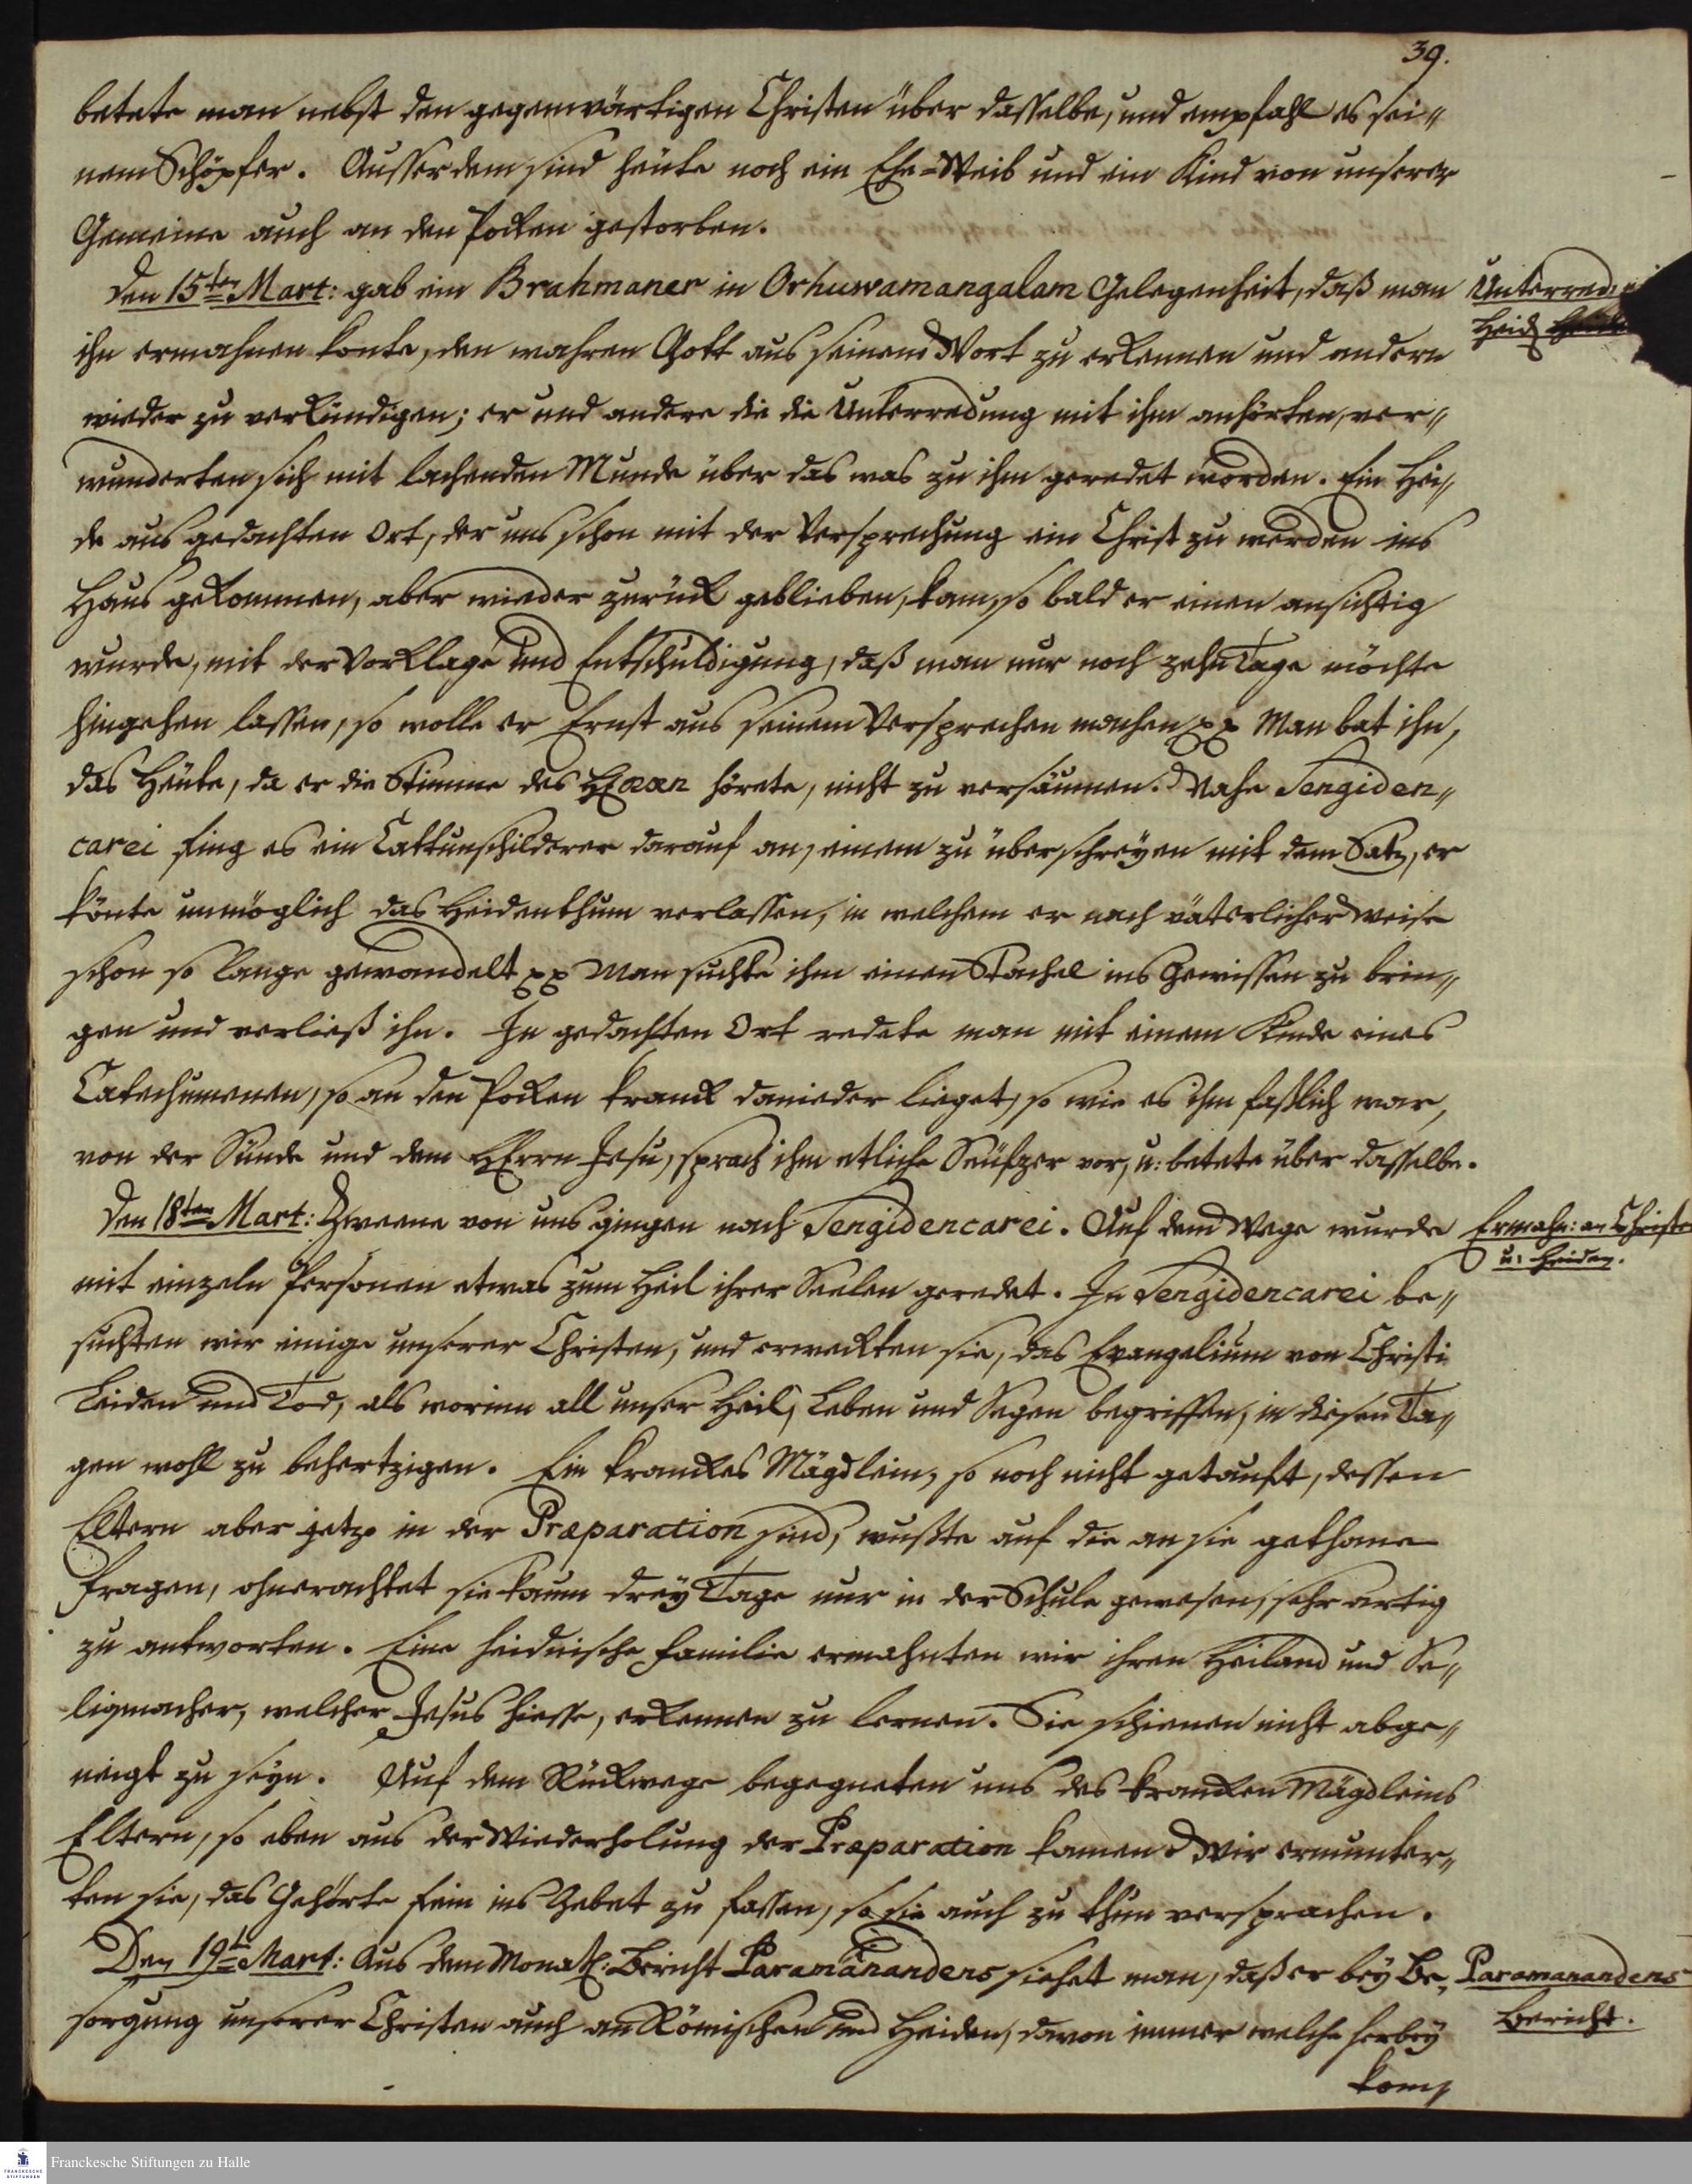 39.
betete man nebst den gegenwärtigen Christen über dasselbe, und empfahl es sei„
nem Schöpfer. Ausserdem sind heute noch ein Ehe-Weib und ein Kind von unserer
Gemeine auch an den Pocken gestorben.
Den 15ten Mart: gab ein Brahmaner in Orhuwamangalam Gelegenheit, daß man
Unterred:
Heid
ihn ermahnen konte, den wahren Gott aus seinem Wort zu erkennen und andern
wieder zu verkündigen; er und andere die die Unterredung mit ihm anhörten, ver„
wunderten sich mit lachenden Munde über das was zu ihm geredet worden. Ein Hei„
de aus gedachten Ort, der uns schon mit der Versprechung ein Christ zu werden ins
Haus gekommen, aber wieder zurück geblieben, kam, so bald er einen ansichtig
wurde, mit der Vorklage und Entschuldigung, daß man nur noch zehn Tage möchte
hingehen lassen, so wolle er Ernst aus seinem Versprechen machen pp Man bat ihn,
das Heute, da er die Stimme des HErrn hörete, nicht zu versäumen. Nahe Tengiden„
carei fing es ein Cattunschilderer darauf an, einem zu überschreyen mit dem Satz, er
könte unmöglich das Heidenthum verlassen, in welchem er nach väterlicher Weise
schon so lange gewandelt pp Man suchte ihm einen Stachel ins Gewissen zu brin„
gen und verließ ihn. In gedachten Ort redete man mit einem Kinde eines
Catechumenen, so an den Pocken kranck danieder lieget, so wie es ihm faßlich war,
von der Sünde und dem HErrn Jesu, sprach ihm etliche Seufzer vor, u: betete über dasselbe.
Den 18ten Mart: Zweene von uns gingen nach Tengidencarei. Auf dem Wege wurde
Ermahn: an Christen
u: Heiden.
mit einzeln Personen etwas zum Heil ihrer Seelen geredet. In Tengidencarei be„
suchten wir einige unserer Christen, und erweckten sie, das Evangelium von Christi
Leiden und Tod, als worinn all unser Heil, Leben und Segen begriffen, in diesen Ta„
gen wohl zu behertzigen. Ein kranckes Mägdlein, so noch nicht getauft, dessen
Eltern aber jetzo in der Præparation sind, wußte auf die an sie gethane
Fragen, ohnerachtet sie kaum drey Tage nur in der Schule gewesen, sehr artig
zu antworten. Eine heidnische Familie ermahnten wir ihren Heiland und Se„
ligmacher, welcher Jesus hiesse, erkennen zu lernen. Sie schienen nicht abge„
neigt zu seyn. Auf dem Rückwege begegneten uns des krancken Mägdleins
Eltern, so eben aus der Wiederholung der Præparation kamen. Wir ermunter„
ten sie, das Gehörte fein ins Gebet zu fassen, so sie auch zu thun versprachen.
Den 19ten Mart: Aus dem Monatl: Bericht Paramanandens siehet man, daß er bey Be„
Paramanandens
Bericht.
sorgung unserer Christen auch an Römischen und Heiden, davon immer welche herbey
kom„
Franckesche Stiftungen zu Halle